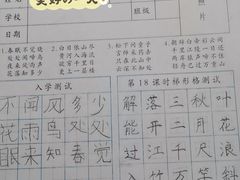 美好的一天
学校
班级
照
片
1春眠不觉晓 2白日依山尽 3松下问童子 4朝辞白帝彩云间
处处闻啼鸟 黄河入海流 言师采药去 千里江陵一日还
夜来风雨声 欲穷千里目 只在此山中 两岸猿声啼不住
花落知多少 更上一层楼 云深不知处 轻舟已过万重山
入学测试
第18课时梯形格测试
不闻风多少
花雨鸟处处
眠来知春觉
解落三秋叶
能开二月花
江千尺浪
入竹万竿斜